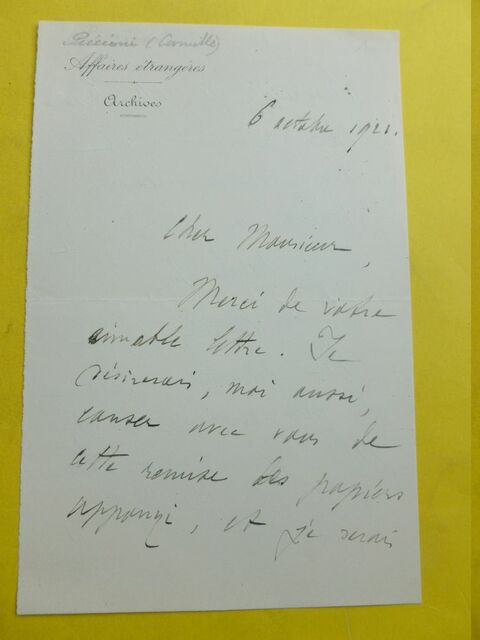 Piccioni (Camille)
Affaires étrangères
Archives
6 octobre 1921.
Cher Monsieur,
Merci de votre
aimable lettre. Je
désirerais, moi aussi,
causer avec vous de
cette remise des papiers
Apponyi, et je serais